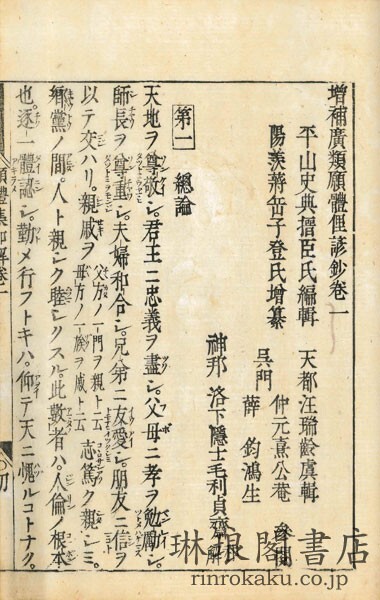 增補廣類願體俚諺鈔卷一
平山史典搢臣氏編輯
陽羨蔣岳子登氏增纂
天都汪瑞齡虞輯
仲元熹公菴
吳門
薛鈞鴻生
參閱
神那洛下隱士毛利貞齋
解
第一 總論
天地ヲ尊敬シ。君王ニ忠義ヲ盡シ。父母ニ孝ヲ勉勵シ。
師長ヲ尊重シ。夫婦和合シ。兄弟ニ友愛シ。朋友ニ信ヲ
以テ交ハリ。親戚ヲ
父方ノ一門ヲ親ト云
母方ノ一族ヲ戚ト云
志篤ク親シミ。
鄉黨ノ間。人ト親シク睦シクスル。此數者ハ。人倫ノ根本
也。逐一體認シ。勤メ行フトキハ。仰テ天ニ愧ルコトナク。
琳琅閣書店
rinrokaku.co.jp